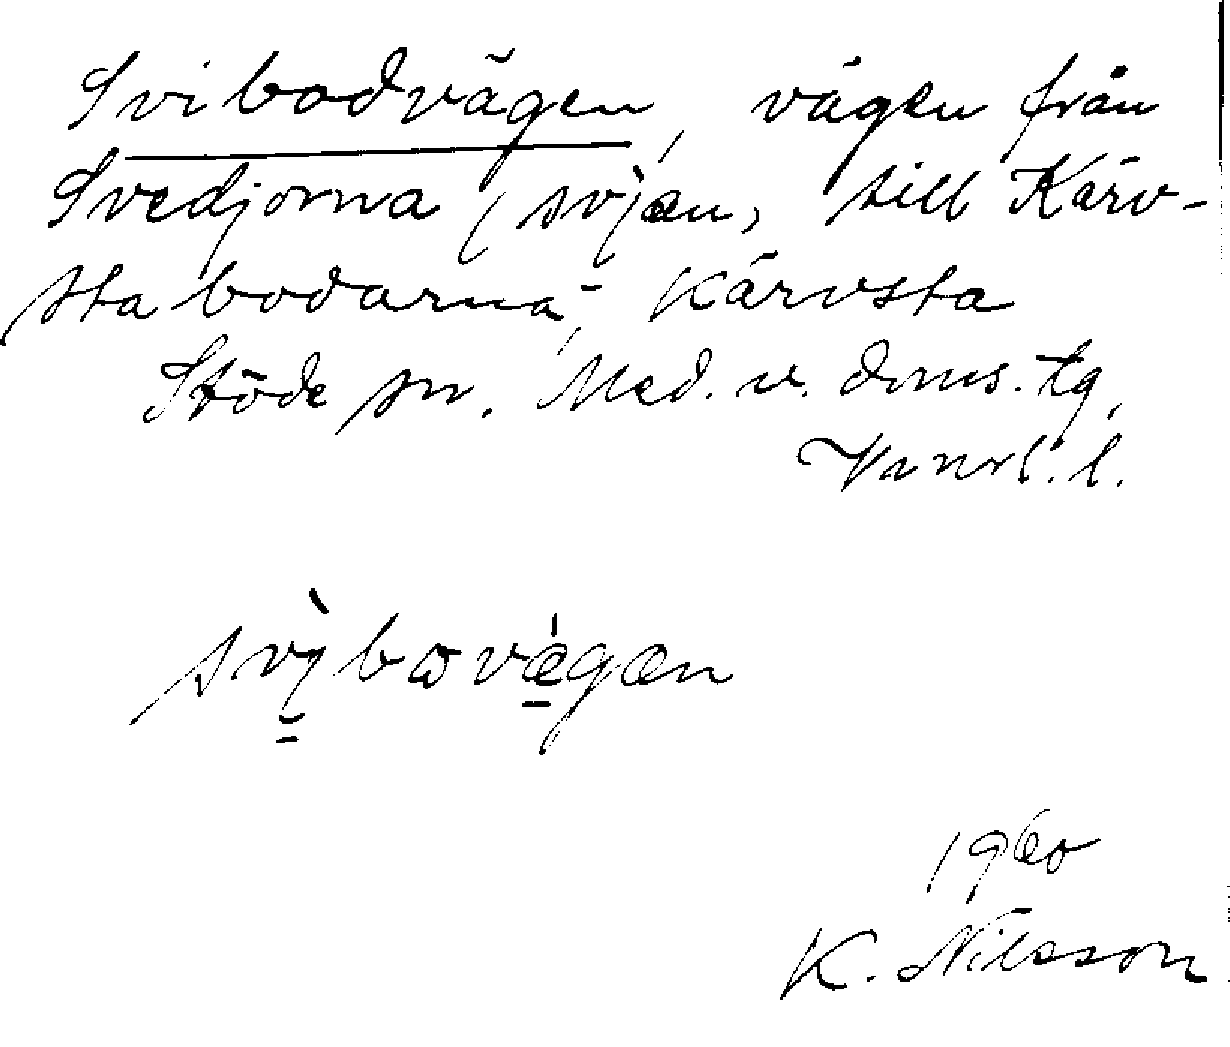 Svibodvägen, vägen från
Svedjorna (svjæn, till Kärv-
stabodarna, Kärvsta
Stöde sn. Med. v. doms. tg,
l.
1960
K. Nilsson